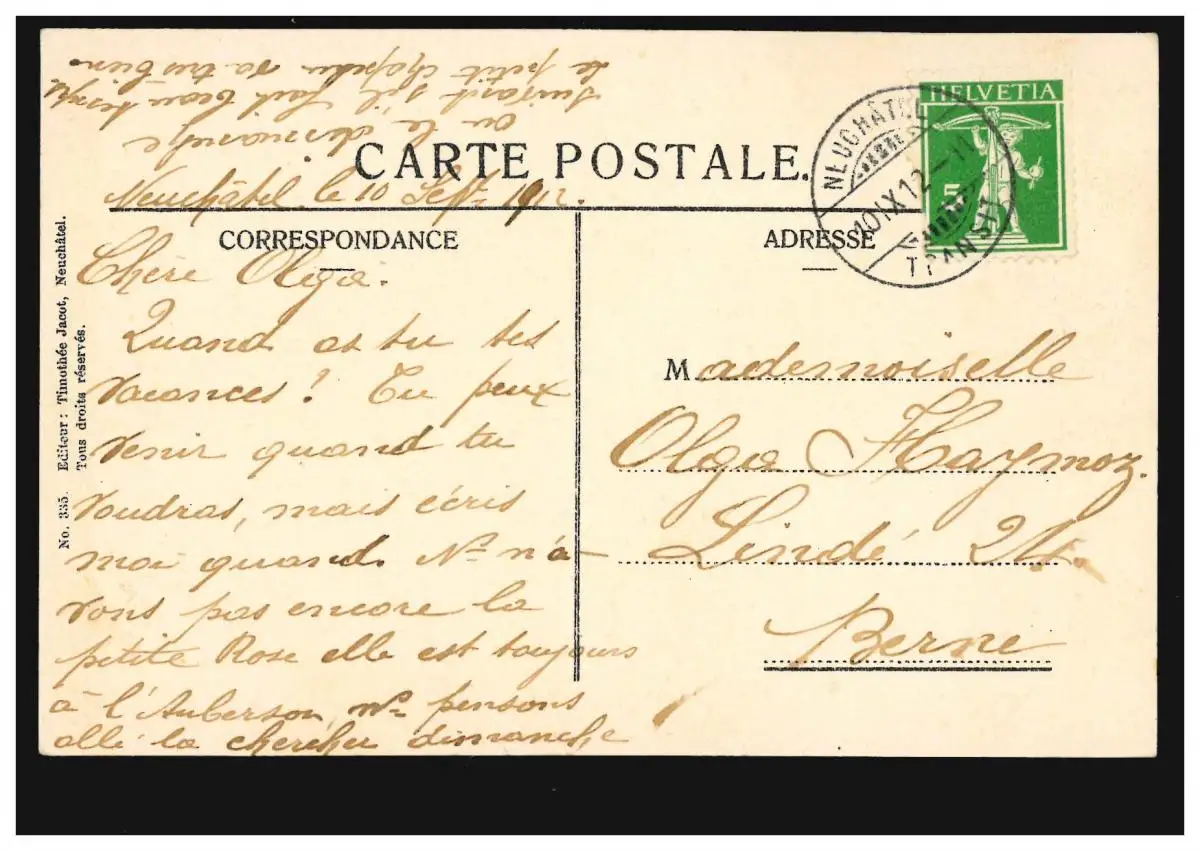 CARTE POSTALE.
Neuchâtel. le 10 Sept. 1912.
CORRESPONDANCE
Chère Olga.
Quand as tu tes
vacances? Tu peux
venir quand tu
voudras, mais écris
moi quand. Ns n'a-
vons pas encore la
petite Rose elle est toujours
à l'Auberson, ns pensons
allé la chercher dimanche
ou le dimanche
suivant s'il fait beau temps
Le petit chapeau va très bien
ADRESSE
Mademoiselle
Olga Haymoz.
Lindé 24.
Berne
HELVETIA
5
NEUCHÂTEL
10 IX 12 - 11
TRANSIT
No. 335. Editeur: Timothée Jacot, Neuchâtel.
Tous droits réservés.